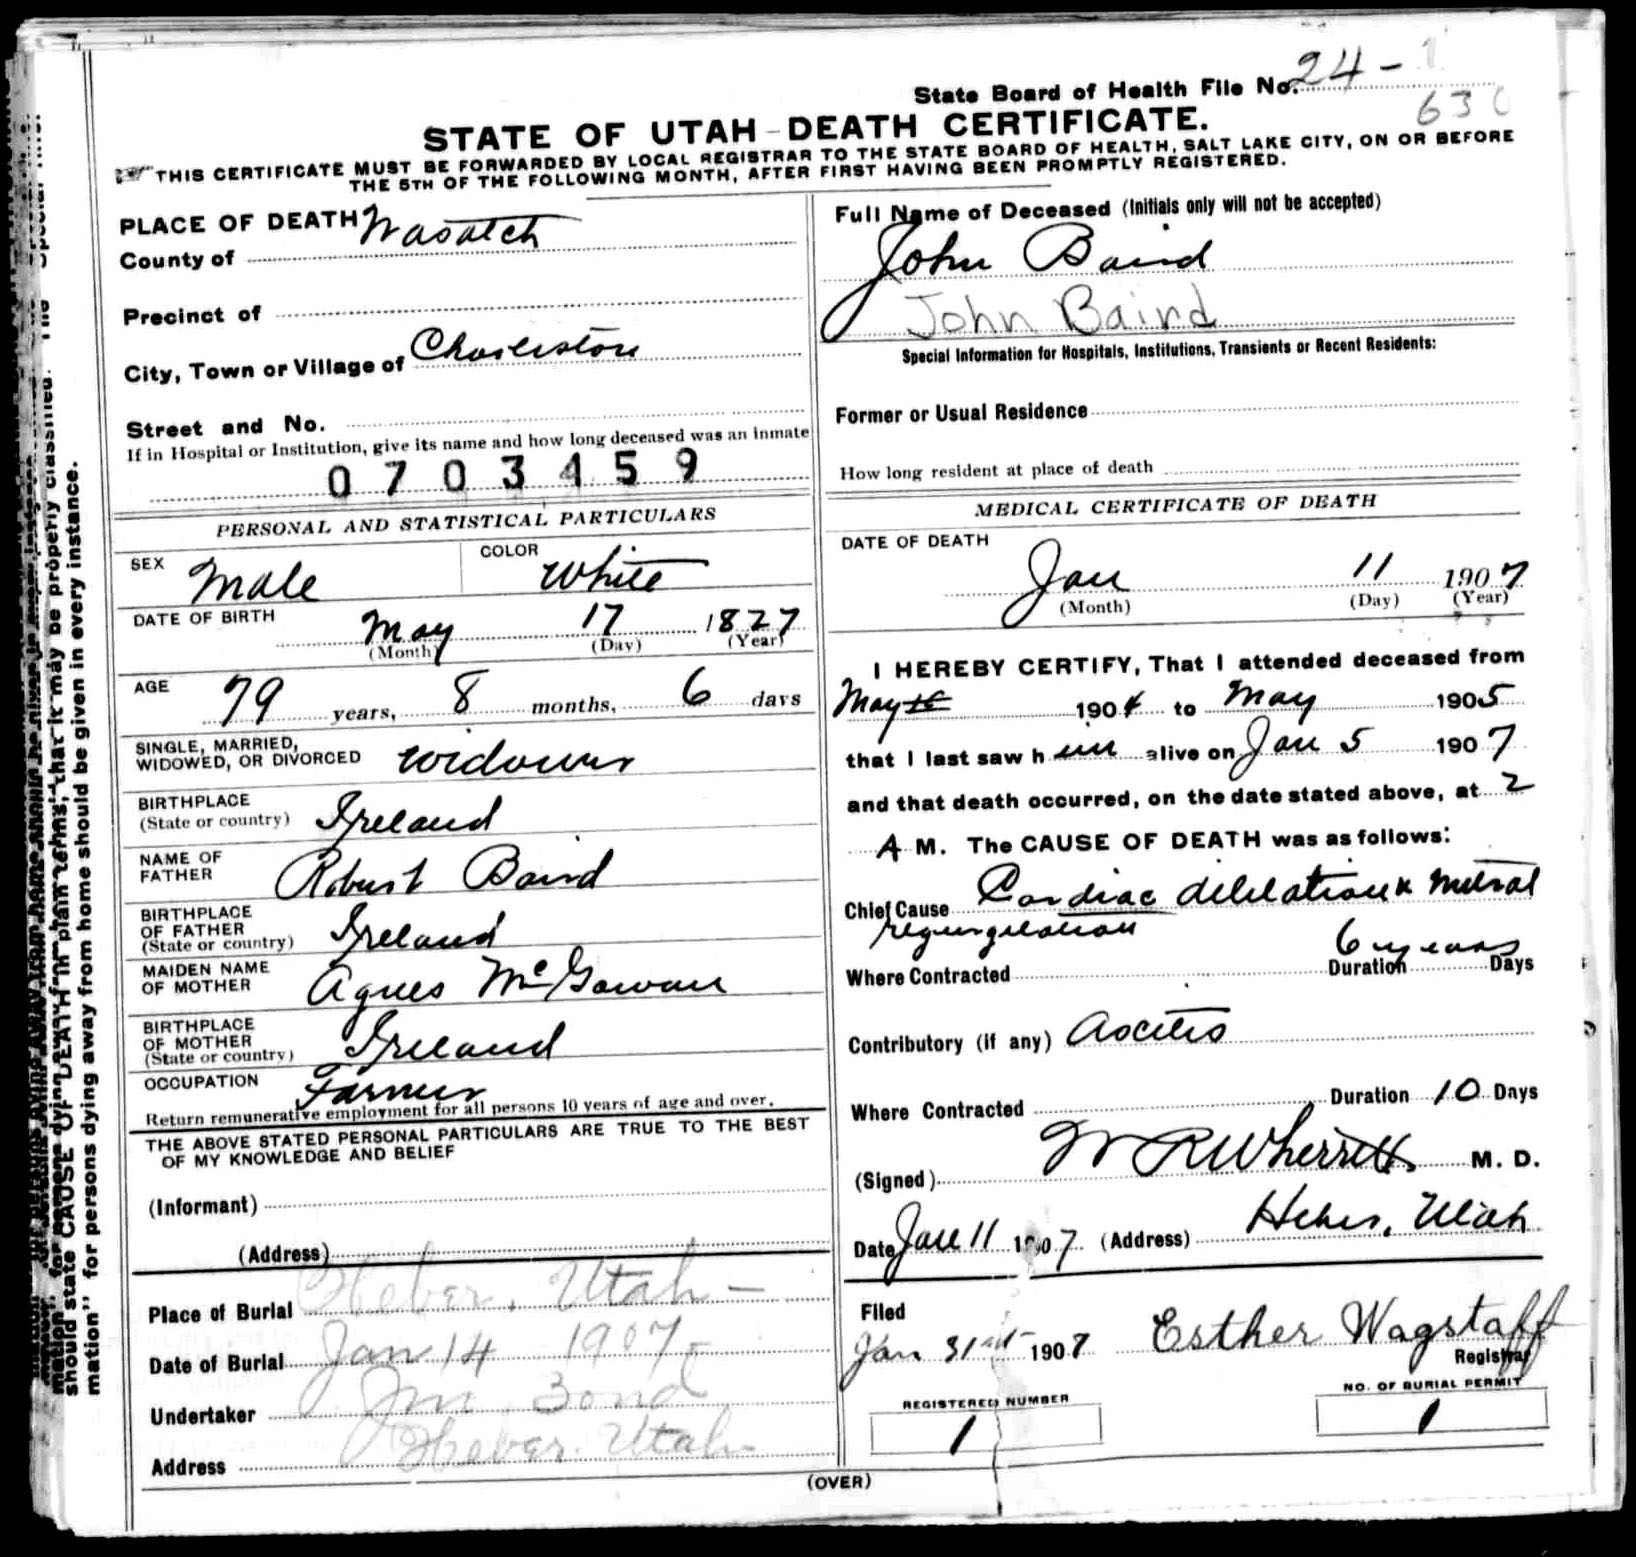 State Board of Health File No. 24-1
630
STATE OF UTAH - DEATH CERTIFICATE.
THIS CERTIFICATE MUST BE FORWARDED BY LOCAL REGISTRAR TO THE STATE BOARD OF HEALTH, SALT LAKE CITY, ON OR BEFORE
THE 5TH OF THE FOLLOWING MONTH, AFTER FIRST HAVING BEEN PROMPTLY REGISTERED.
PLACE OF DEATH
County of Wasatch
Precinct of
City, Town or Village of Charleston
Street and No.
If in Hospital or Institution, give its name and how long deceased was an inmate
0703459
PERSONAL AND STATISTICAL PARTICULARS
SEX Male COLOR White
DATE OF BIRTH May 17 1827
(Month) (Day) (Year)
AGE 79 years, 8 months, 6 days
SINGLE, MARRIED,
WIDOWED, OR DIVORCED widower
BIRTHPLACE
(State or country) Ireland
NAME OF
FATHER Robert Baird
BIRTHPLACE
OF FATHER
(State or country) Ireland
MAIDEN NAME
OF MOTHER Agnes McGowan
BIRTHPLACE
OF MOTHER
(State or country) Ireland
OCCUPATION Farmer
Return remunerative employment for all persons 10 years of age and over.
THE ABOVE STATED PERSONAL PARTICULARS ARE TRUE TO THE BEST
OF MY KNOWLEDGE AND BELIEF
(Informant)
(Address)
Place of Burial Heber, Utah -
Date of Burial Jan 14 1907
Undertaker Bond
Address Heber. Utah
Full Name of Deceased (Initials only will not be accepted)
John Baird
John Baird
Special Information for Hospitals, Institutions, Transients or Recent Residents:
Former or Usual Residence
How long resident at place of death
MEDICAL CERTIFICATE OF DEATH
DATE OF DEATH
Jan 11 1907
(Month) (Day) (Year)
I HEREBY CERTIFY, That I attended deceased from
May 1904 to May 1905
that I last saw him alive on Jan 5 1907
and that death occurred, on the date stated above, at 2
A M. The CAUSE OF DEATH was as follows:
Chief Cause Cardiac dililation & Mitral
regurgitation
Where Contracted Duration 6 years Days
Contributory (if any) Ascitis
Where Contracted Duration 10 Days
(Signed) W R Wherritt M. D.
Date Jan 11 1907 (Address) Heber, Utah
Filed
Jan 31st 1907 Esther Wagstaff
Registrar
REGISTERED NUMBER
1
NO. OF BURIAL PERMIT
1
(OVER)
should state CAUSE OF DEATH in plain terms, that it may be properly classified.
mation" for persons dying away from home should be given in every instance.